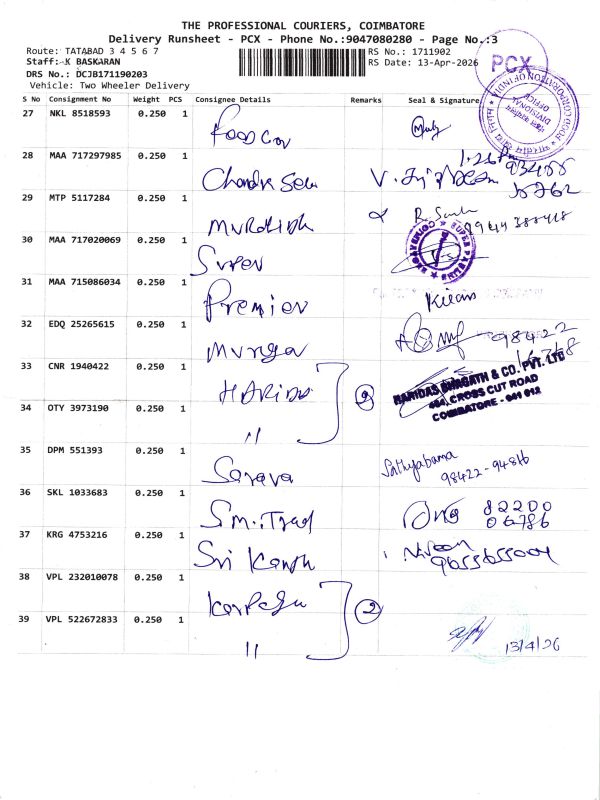 THE PROFESSIONAL COURIERS, COIMBATORE
Delivery Runsheet - PCX - Phone No.:9047080280 - Page No.:3
Route: TATABAD 3 4 5 6 7
Staff: K BASKARAN
DRS No.: DCJB171190203
Vehicle: Two Wheeler Delivery
RS No.: 1711902
RS Date: 13-Apr-2026
PCX
FOOD CORPORATION OF INDIA
DIVISIONAL OFFICE
S No Consignment No Weight PCS Consignee Details Remarks Seal & Signature
27 NKL 8518593 0.250 1 Food Cor
28 MAA 717297985 0.250 1 Chandra Sek
29 MTP 5117284 0.250 1
30 MAA 717020069 0.250 1 Suren
31 MAA 715086034 0.250 1 Premier
32 EDQ 25265615 0.250 1 Muruga 98422
33 CNR 1940422 0.250 1 HARIDAS
HARIDAS BHAGATH & CO. PVT. LTD
484, CROSS CUT ROAD
COIMBATORE - 641 012
34 OTY 3973190 0.250 1 "
2
35 DPM 551393 0.250 1 Sarava Sathyabama
98422-94816
36 SKL 1033683 0.250 1 Sm.iTrad 82200
06786
37 KRG 4753216 0.250 1 Sri Kanth Naveen
9655655004
38 VPL 232010078 0.250 1 Karpaga
2
39 VPL 522672833 0.250 1 " 13/4/26